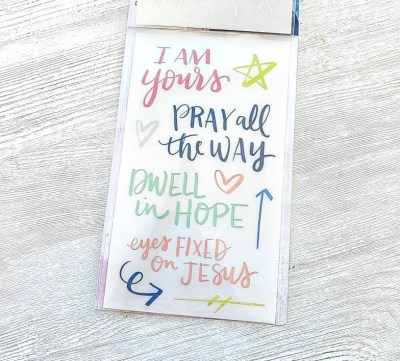 I AM
yours
PRAY all
the WAY
DWELL
in HOPE
eyes FIXED
on JESUS